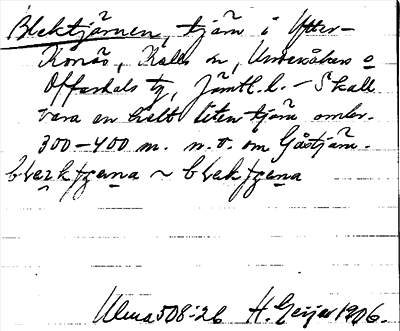 Blektjärnen, tjärn i Ytter-
Konäs, Kalls sn, Undersåkers o
Offerdals tg, Jämtl. l. – Skall
vara en helt liten tjärn ombr.
300–400 m. n. o. om Gåstjärn.
Ulma 508:26 H. Geijer 1906.